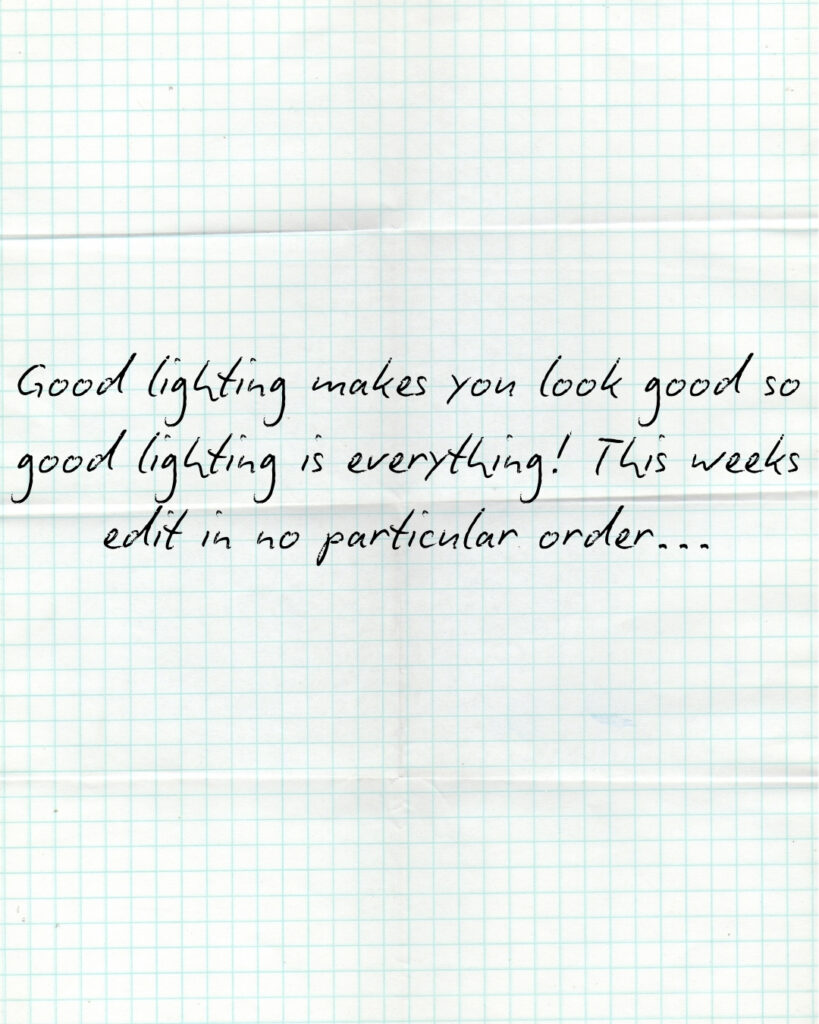 Good lighting makes you look good so
good lighting is everything! This weeks
edit in no particular order...